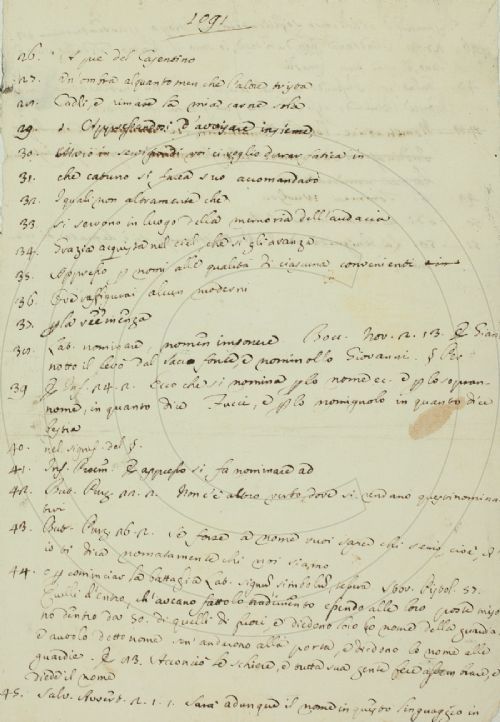 1091
26. A piè del Casentino
27. Un'ombra alquanto men che l'altre trista
28. Cadli, e rimase la mia carne sola
29. 1. d'avvisare insieme
30. voi ci voglio durar fatica in
31. che catuno si facea suo accomandato
32. I quali non altramente che
33 si servono in luogo della memoria dell'audacia
34. Grazia acquista nel ciel, che sì gli avanza
35. Appresso p nomi alle qualità di ciascuna convenienti
36. Ove raffigurai alcun moderni
37. p la veemenza
38. Lat. nominare, nomen imponere Bocc. Nov. 2. 13. E Gian-
notto il levò dal sacro fonte, e nominollo Giovanni. §
39 E Inf. 24. 2. Ecco che si nomina p lo nome ec. e p lo sopran-
nome, in quanto dice Fucci, e p lo nomignolo in quanto dice
bestia
40. nel signif. del §.
41. Inf. E appresso si fa nominare ad
42. But. Purg. 22. 2. Non c'è altro verbo, dove si vendano questi nomina-
tivi
43. But. Purg. 26. 2. e forse a nome vuoi sapere chi semo, cioè,
io vi dica nomatamente chi noi siamo
44. e p cominciar la battaglia Lat. Stor. Pistol. 57.
Quelli d'entro, ch'aveano fatto lo tradimento aprendo alle loro porte miso-
no dentro da 50. di quelli di fuori, e diedono loro lo nome della guardia
e avuto detto nome n'andarono alla porta, e diedono lo nome alle
guardie. E 93. Acconciò le schiere, e tutta sua gente fece assembrare, e
diede il nome
45. Salv. Avvert. 2. 1. 1. Sarà adunque il nome in questo linguaggio in